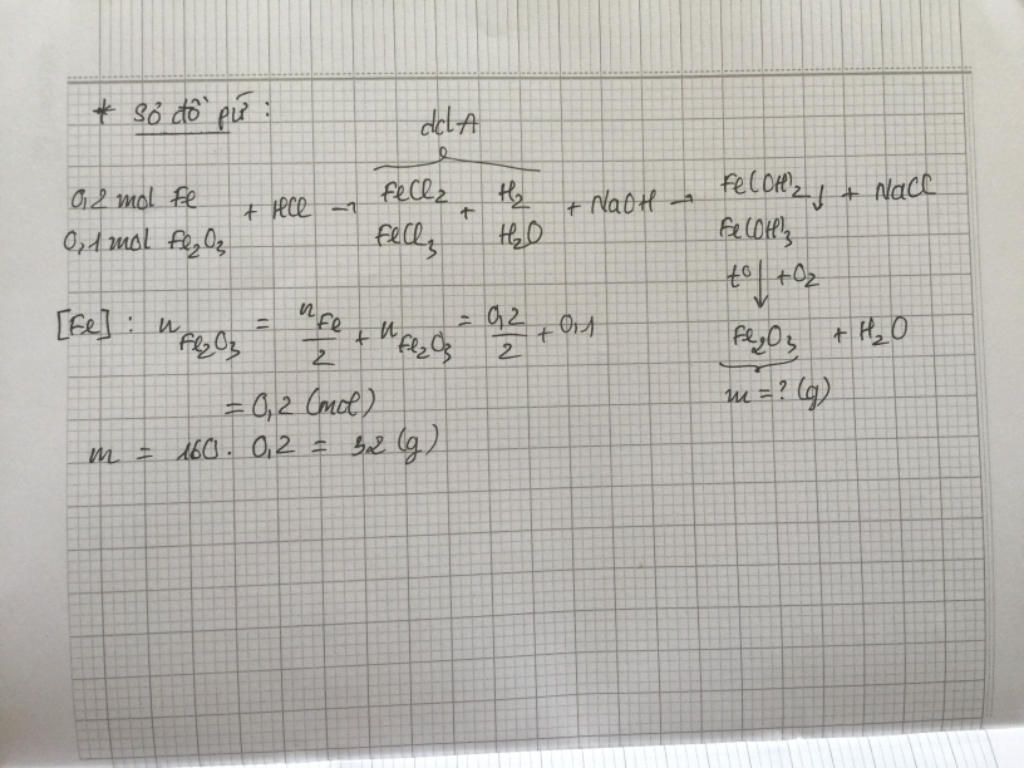 * Sơ đồ pứ :
ddA
0,2 mol Fe + HCl → FeCl2 + H2 + NaOH → Fe(OH)2↓ + NaCl
0,1 mol Fe2O3 FeCl3 H2O Fe(OH)3
t° ↓ +O2
Fe2O3 + H2O
m = ? (g)
[Fe] : nFe2O3 = nFe/2 + nFe2O3 = 0,2/2 + 0,1
= 0,2 (mol)
m = 160. 0,2 = 32 (g)